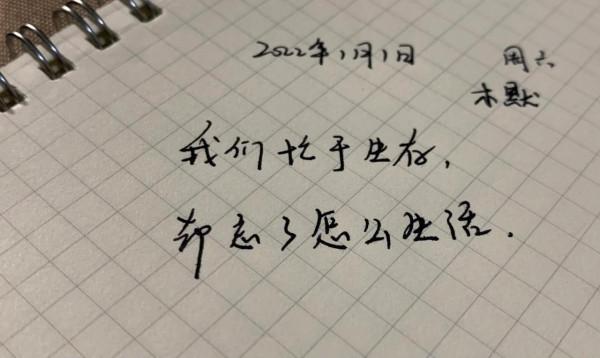 2022年1月1日 周六
木默
我们忙于生存,
却忘了怎么生活.